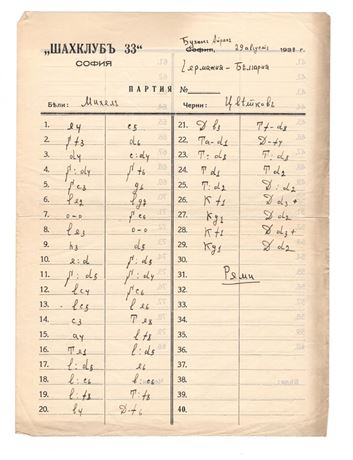 „ШАХКЛУБЪ 33“
СОФИЯ
Буеносъ Айресъ
София, 29 августъ 1939 г.
Германия - България
ПАРТИЯ №
Бѣли: Михелъ
Черни: Цвѣтковъ
1. e4 c5
2. f3 d6
3. d4 c:d4
4. :d4 f6
5. c3 g6
6. le2 lg7
7. o-o c6
8. le3 o-o
9. h3 d5
10. e:d :d5
11. :d5 :d5
12. lc4 c6
13. lc5 le6
14. c3 Te8
15. a4 l:f3
16. Te1 l:d5
17. l:d5 e6
18. l:c6 l:c6
19. l:f8 T:f8
20. l4 Д-f6
21. Дb3 Tf-d8
22. Ta-d1 Д-f4
23. T:d8 T:d8
24. Td1 Td2
25. T:d2 Д:d2
26. Kf1 Дd3+
27. Kg1 Дd2
28. Kf1 Дd3+
29. Kg1 Дd2
30.
31. Реми
32.
33.
34.
35.
36.
37.
38.
39.
40.